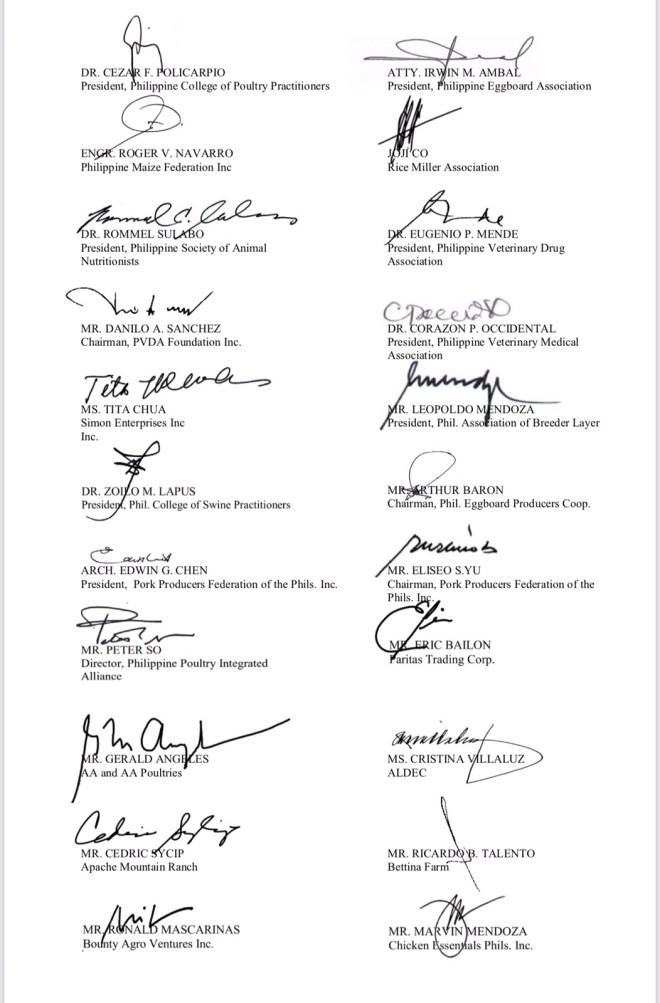 DR. CEZAR F. POLICARPIO
President, Philippine College of Poultry Practitioners
ATTY. IRWIN M. AMBAL
President, Philippine Eggboard Association
ENGR. ROGER V. NAVARRO
Philippine Maize Federation Inc
JOJI CO
Rice Miller Association
DR. ROMMEL SULABO
President, Philippine Society of Animal
Nutritionists
DR. EUGENIO P. MENDE
President, Philippine Veterinary Drug
Association
MR. DANILO A. SANCHEZ
Chairman, PVDA Foundation Inc.
DR. CORAZON P. OCCIDENTAL
President, Philippine Veterinary Medical
Association
MS. TITA CHUA
Simon Enterprises Inc
Inc.
MR. LEOPOLDO MENDOZA
President, Phil. Association of Breeder Layer
DR. ZOILO M. LAPUS
President, Phil. College of Swine Practitioners
MR. ARTHUR BARON
Chairman, Phil. Eggboard Producers Coop.
ARCH. EDWIN G. CHEN
President, Pork Producers Federation of the Phils. Inc.
MR. ELISEO S.YU
Chairman, Pork Producers Federation of the
Phils. Inc.
MR. PETER SO
Director, Philippine Poultry Integrated
Alliance
MR. ERIC BAILON
Paritas Trading Corp.
MR. GERALD ANGELES
AA and AA Poultries
MS. CRISTINA VILLALUZ
ALDEC
MR. CEDRIC SYCIP
Apache Mountain Ranch
MR. RICARDO B. TALENTO
Bettina Farm
MR. RONALD MASCARINAS
Bounty Agro Ventures Inc.
MR. MARVIN MENDOZA
Chicken Essentials Phils. Inc.